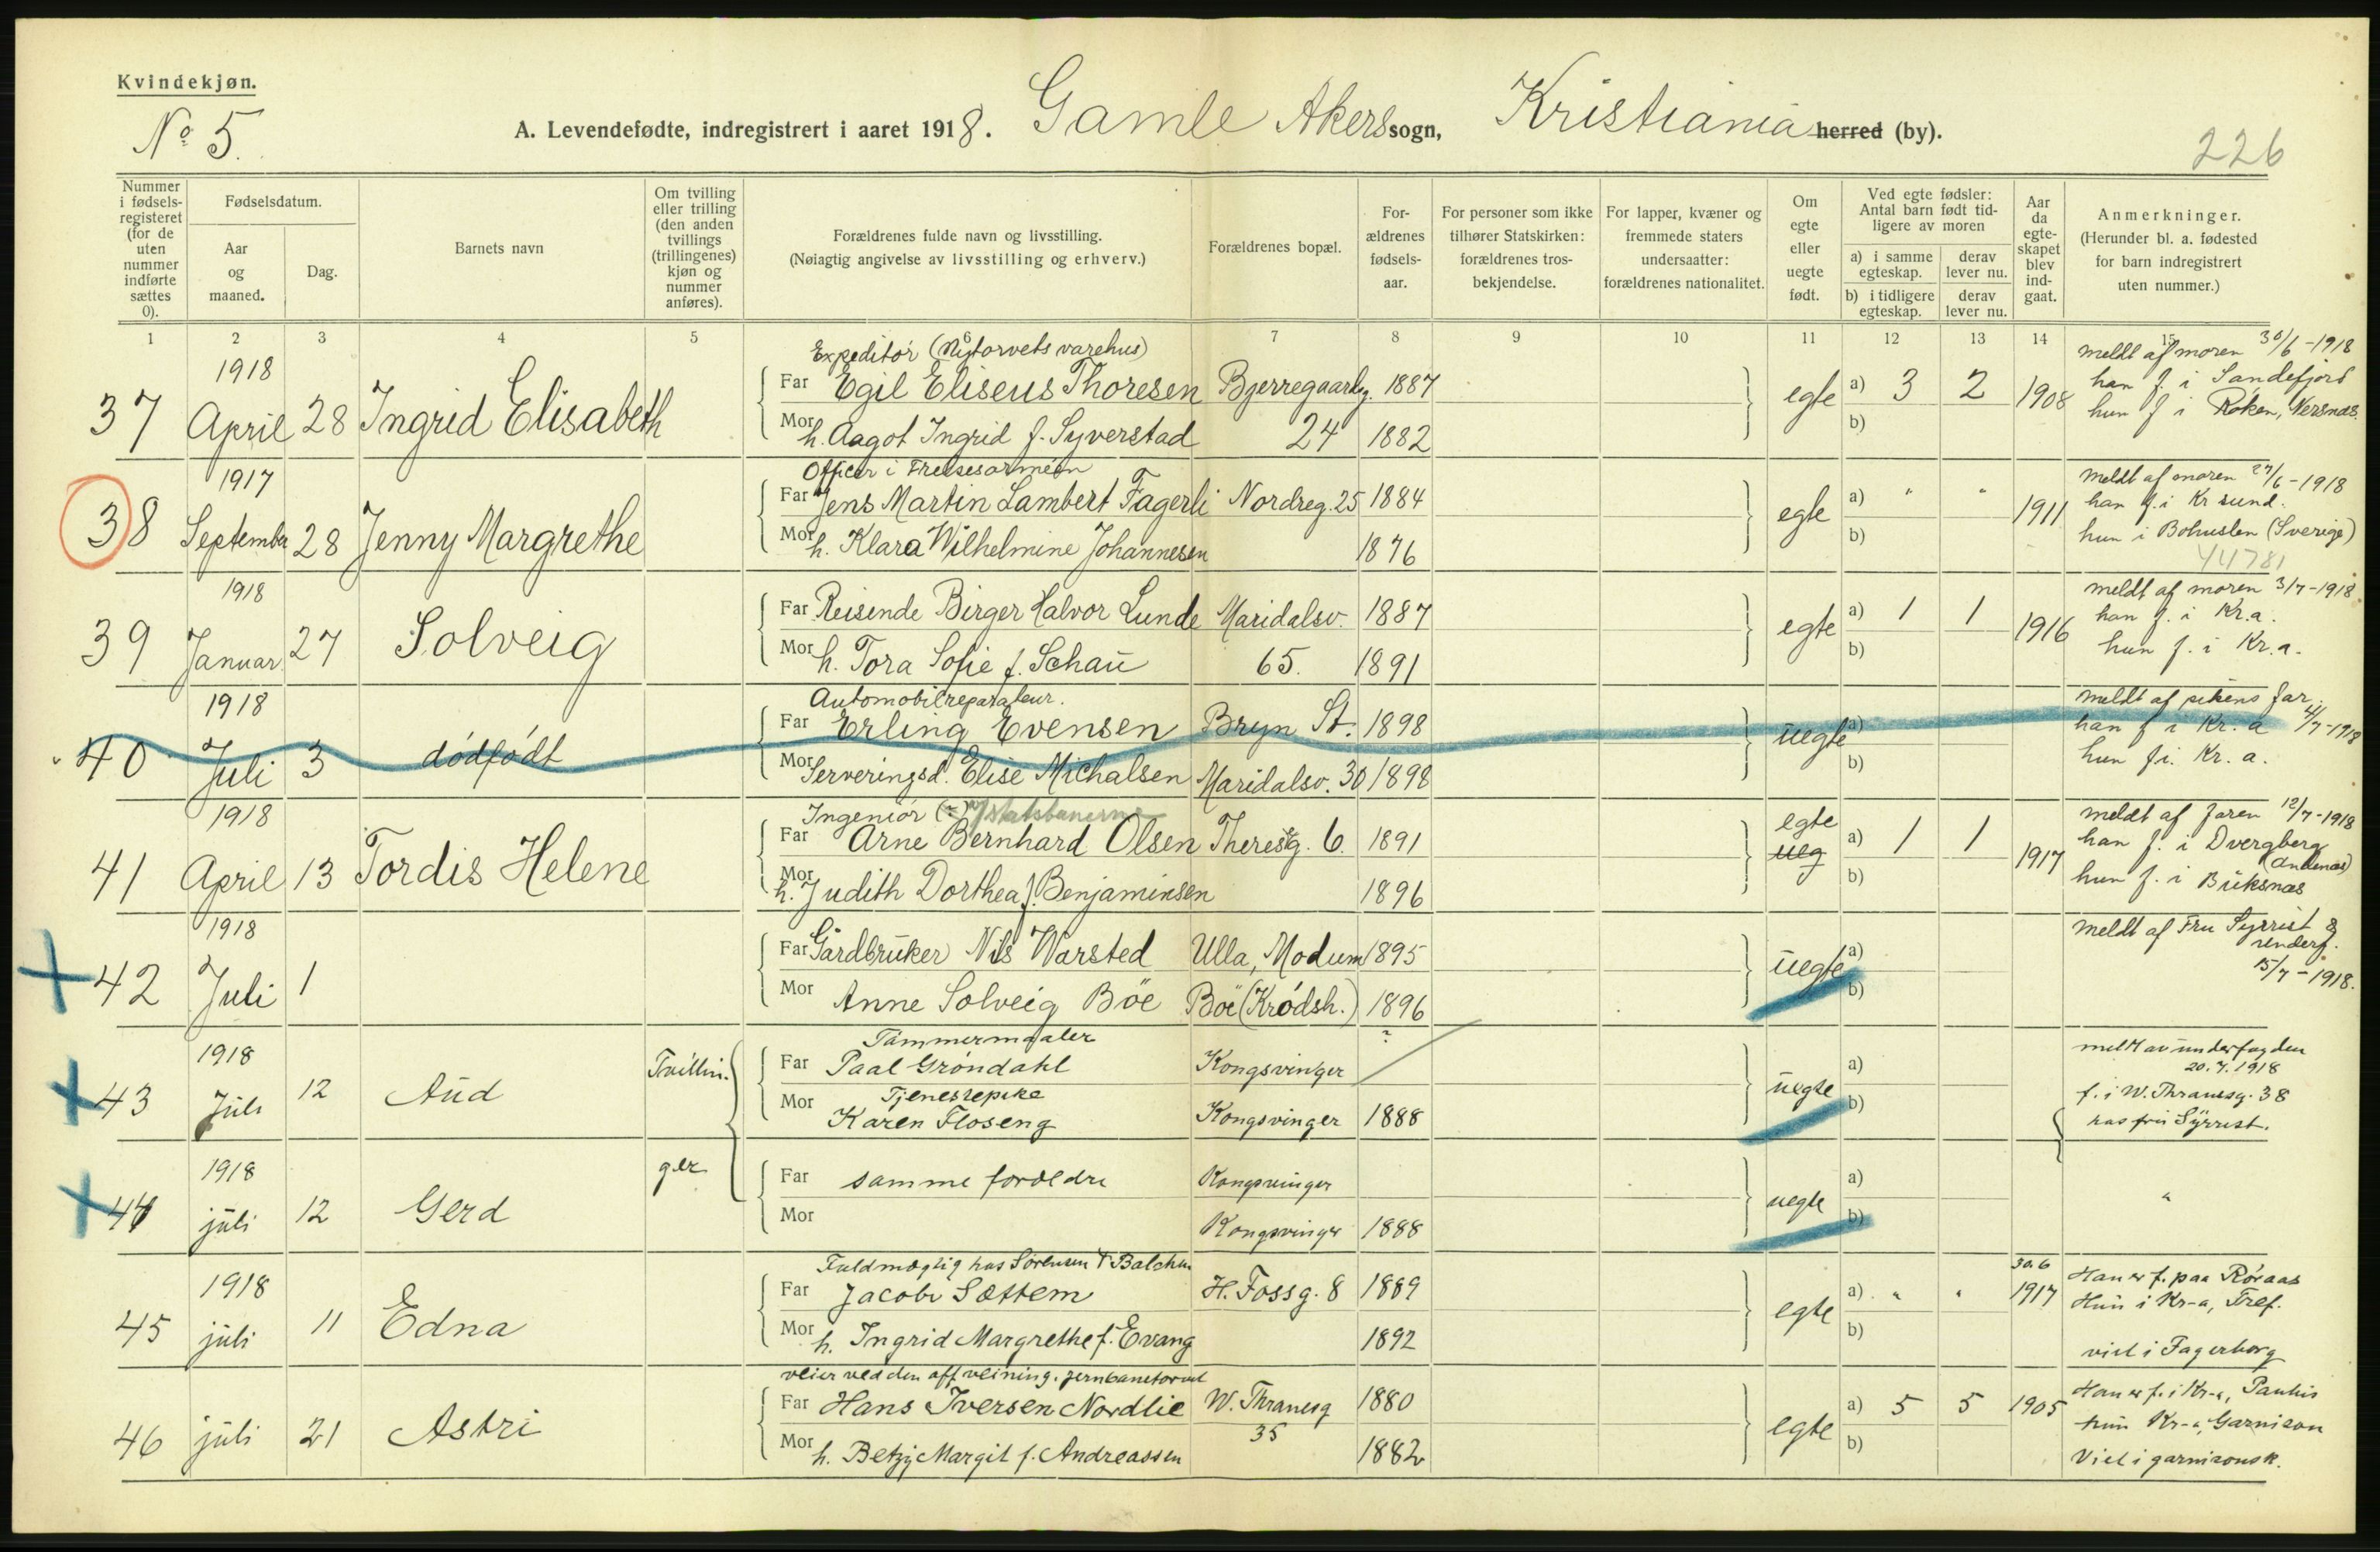 Kvindekjøn.
No 5.
A. Levendefødte, indregistrert i aaret 1918. Gamle Akers sogn, Kristiania herred (by).
226
Nummer i fødsels-registeret (for de uten nummer indførte sættes 0).
Fødselsdatum.
Aar og maaned.
Dag.
Barnets navn
Om tvilling eller trilling (den anden tvillings (trillingenes) kjøn og nummer anføres).
Forældrenes fulde navn og livsstilling.
(Nøiagtig angivelse av livsstilling og erhverv.)
Forældrenes bopæl.
For-ældrenes fødsels-aar.
For personer som ikke tilhører Statskirken: forældrenes tros-bekjendelse.
For lapper, kvæner og fremmede staters undersaatter: forældrenes nationalitet.
Om egte eller uegte født.
Ved egte fødsler: Antal barn født tid-ligere av moren
a) i samme egteskap.
derav lever nu.
b) i tidligere egteskap.
derav lever nu.
Aar da egte-skapet blev ind-gaat.
Anmerkninger.
(Herunder bl. a. fødested for barn indregistrert uten nummer.)
1 2 3 4 5 6 7 8 9 10 11 12 13 14 15
1918
Expeditór (Nytorvets varehus)
meldt af moren 30/6-1918
37 April 28 Ingrid Elisabeth
Far Egil Eliseus Thoresen Bjerregaardsg. 1887
egte a) 3 2 1908
han f. i Sandefjord
Mor h. Aagot Ingrid f. Syverstad 24 1882
b)
hun f i Røken, Nersnæs.
1917
Officer i Frelsesarméen
meldt af moren 27/6-1918
38 September 28 Jenny Margrethe
Far Jens Martin Lambert Fagerli Nordreg. 25 1884
egte a) " " 1911
han f. i Kr sund.
Mor h. Klara Wilhelmine Johannesen 1876
b)
hun i Bohuslen (Sverige)
44781
1918
meldt af moren 3/7-1918
39 Januar 27 Solveig
Far Reisende Birger Halvor Lunde Maridalsv. 1887
egte a) 1 1 1916
han f. i Kr.a.
Mor h. Tora Sofie f. Schau 65. 1891
b)
hun f. i Kr.a.
1918
Automobilreparateur.
meldt af pikens far 4/7-1918
40 Juli 3 dødfødt
Far Erling Evensen Bryn St. 1898
uegte a)
han f i Kr. a
Mor Serveringsd. Elise Michalsen Maridalsv. 30 1898
b)
hun f i. Kr. a.
1918
Ingeniør (v/statsbanerne
meldt af faren 12/7-1918
41 April 13 Tordis Helene
Far Arne Bernhard Olsen Theresg. 6. 1891
egte ueg a) 1 1 1917
han f. i Dvergberg (Andenæs)
Mor h. Judith Dorthea f. Benjaminsen 1896
b)
hun f. i Buksnæs
1918
meldt af Fru Syrrist
15/7-1918.
42 Juli 1
Far Gårdbruker Nils Warsted Ulla, Modum 1895
uegte a)
Mor Anne Solveig Böe Böe (Krødsh.) 1896
b)
1918
Tømmermaaler
?
43 Juli 12 Aud Tvillin-
Far Paal Grøndahl Kongsvinger
uegte a)
Tjenestepike
Mor Karen Floseng Kongsvinger 1888
b)
20.7.1918
f. i W. Thranesg. 38
hos fru Syrrist.
1918
44 juli 12 Gerd ger
Far samme foreldre Kongsvinger
uegte a)
"
Mor Kongsvinger 1888
b)
1918
Fuldmægtig hos Sørensen & Balchen
30.6
Han er f. paa Røraas
45 juli 11 Edna
Far Jacob Sættem H. Fossg. 8 1889
egte a) " " 1917
Hun i Kr-a, Tref.
Mor h. Ingrid Margrethe f. Evang 1892
b)
viet i Fagerborg
veier ved den off. veining. jernbanetorvet
Han er f. i Kr-a, Paulus
46 juli 21 Astri
Far Hans Iversen Nordlie W. Thranesg 1880
egte a) 5 5 1905
hun Kr-a, Garnison
35
Mor h. Betzy Margit f. Andreassen 1882
b)
Viet i garnisonsk.